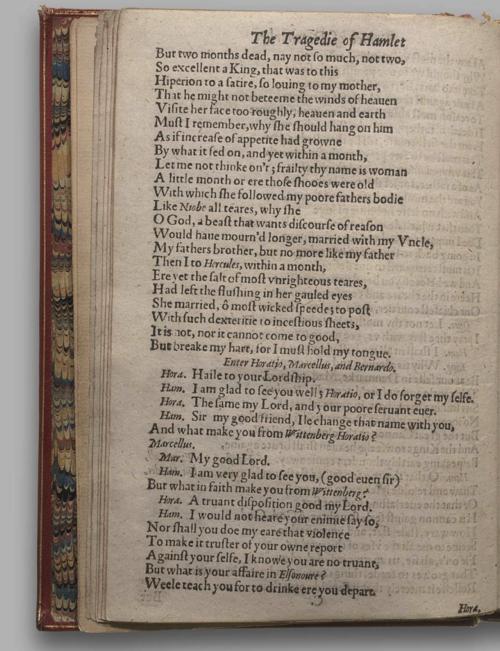 The Tragedie of Hamlet
But two months dead, nay not so much, not two,
So excellent a King, that was to this
Hiperion to a satire, so louing to my mother,
That he might not beteeme the winds of heauen
Visite her face too roughly, heauen and earth
Must I remember, why she should hang on him
As if increase of appetite had growne
By what it fed on, and yet within a month,
Let me not thinke on't; frailty thy name is woman
A little month or ere those shooes were old
With which she followed my poore fathers bodie
Like Niobe all teares, why she
O God, a beast that wants discourse of reason
Would haue mourn'd longer, married with my Vncle,
My fathers brother, but no more like my father
Then I to Hercules, within a month,
Ere yet the salt of most vnrighteous teares,
Had left the flushing in her gauled eyes
She married, ô most wicked speede; to post
With such dexteritie to incestious sheets,
It is not, nor it cannot come to good,
But breake my hart, for I must hold my tongue.
Enter Horatio, Marcellus, and Bernardo.
Hora. Haile to your Lordship.
Ham. I am glad to see you well; Horatio, or I do forget my selfe.
Hora. The same my Lord, and your poore seruant euer.
Ham. Sir my good friend, Ile change that name with you,
And what make you from Wittenberg Horatio?
Marcellus.
Mar. My good Lord.
Ham. I am very glad to see you, (good euen sir)
But what in faith make you from Wittenberg?
Hora. A truant disposition good my Lord.
Ham. I would not heare your enimie say so,
Nor shall you doe my eare that violence
To make it truster of your owne report
Against your selfe, I knowe you are no truant,
But what is your affaire in Elsonoure?
Weele teach you for to drinke ere you depart.
Hora,